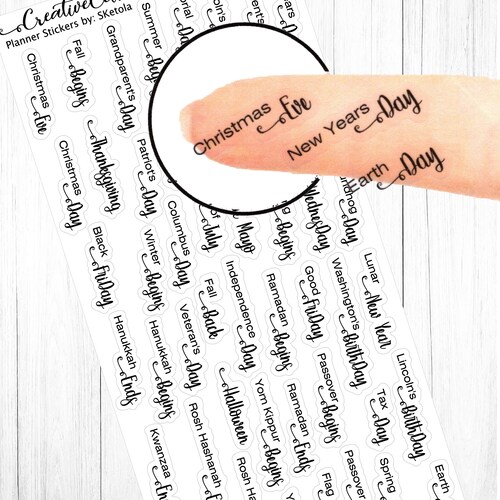 Planner Stickers by: SKetola
Christmas Eve
Fall Begins
Grandparent's Day
Summer
Christmas Eve
New Years Day
Earth Day
Christmas Day
Thanksgiving
Patriot's Day
Columbus Day
of July
Mayo
Begins
Black FriDay
Winter Begins
Fall Back
Independence Day
Ramadan Begins
Good FriDay
Washington's BirthDay
Lunar New Year
Hanukkah Ends
Hanukkah Begins
Veteran's Day
Halloween
Yom Kippur Begins
Ramadan Ends
Passover Begins
Tax Day
Lincoln's BirthDay
Kwanzaa
Rosh Hashanah
Rosh
Flag
Passover
Spring
Earth